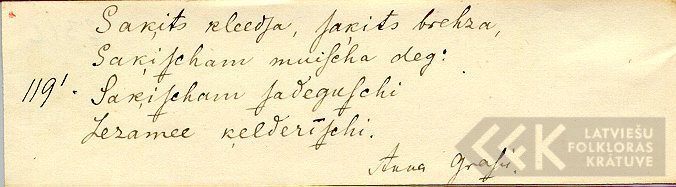 Saķits kleedſa, ſaķits brehza,
Saķiſcham muiſcha deg:
119'. Saķiſcham ſadeguſchi
Lezamee ķelderīſchi.
Anna Graſis.
LATVIEŠU
FOLKLORAS
KRĀTUVE